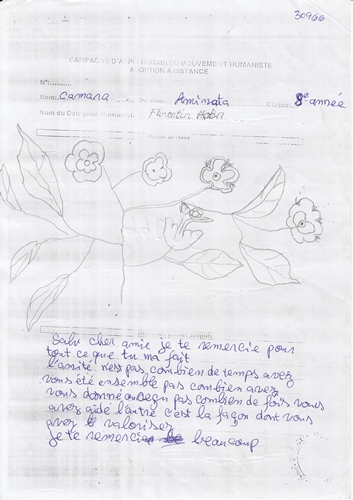 30966
CAMPAGNE D'APPUI HUMAIN DU MOUVEMENT HUMANISTE
ADOPTION A DISTANCE
N°
Nom: Camara Aminata Classe: 8e année
Nom du Délégué Humaniste: Florentin Haba
Salu cher amie je te remercie pour
tout ce que tu ma fait
l'amitié n'est pas combien de temps avez
vous été ensemble pas combien avez
vous donné ou reçu pas combien de fois vous
avez aidé l'autre c'est la façon dont vous
avez le valorisez
je te remercie beaucoup